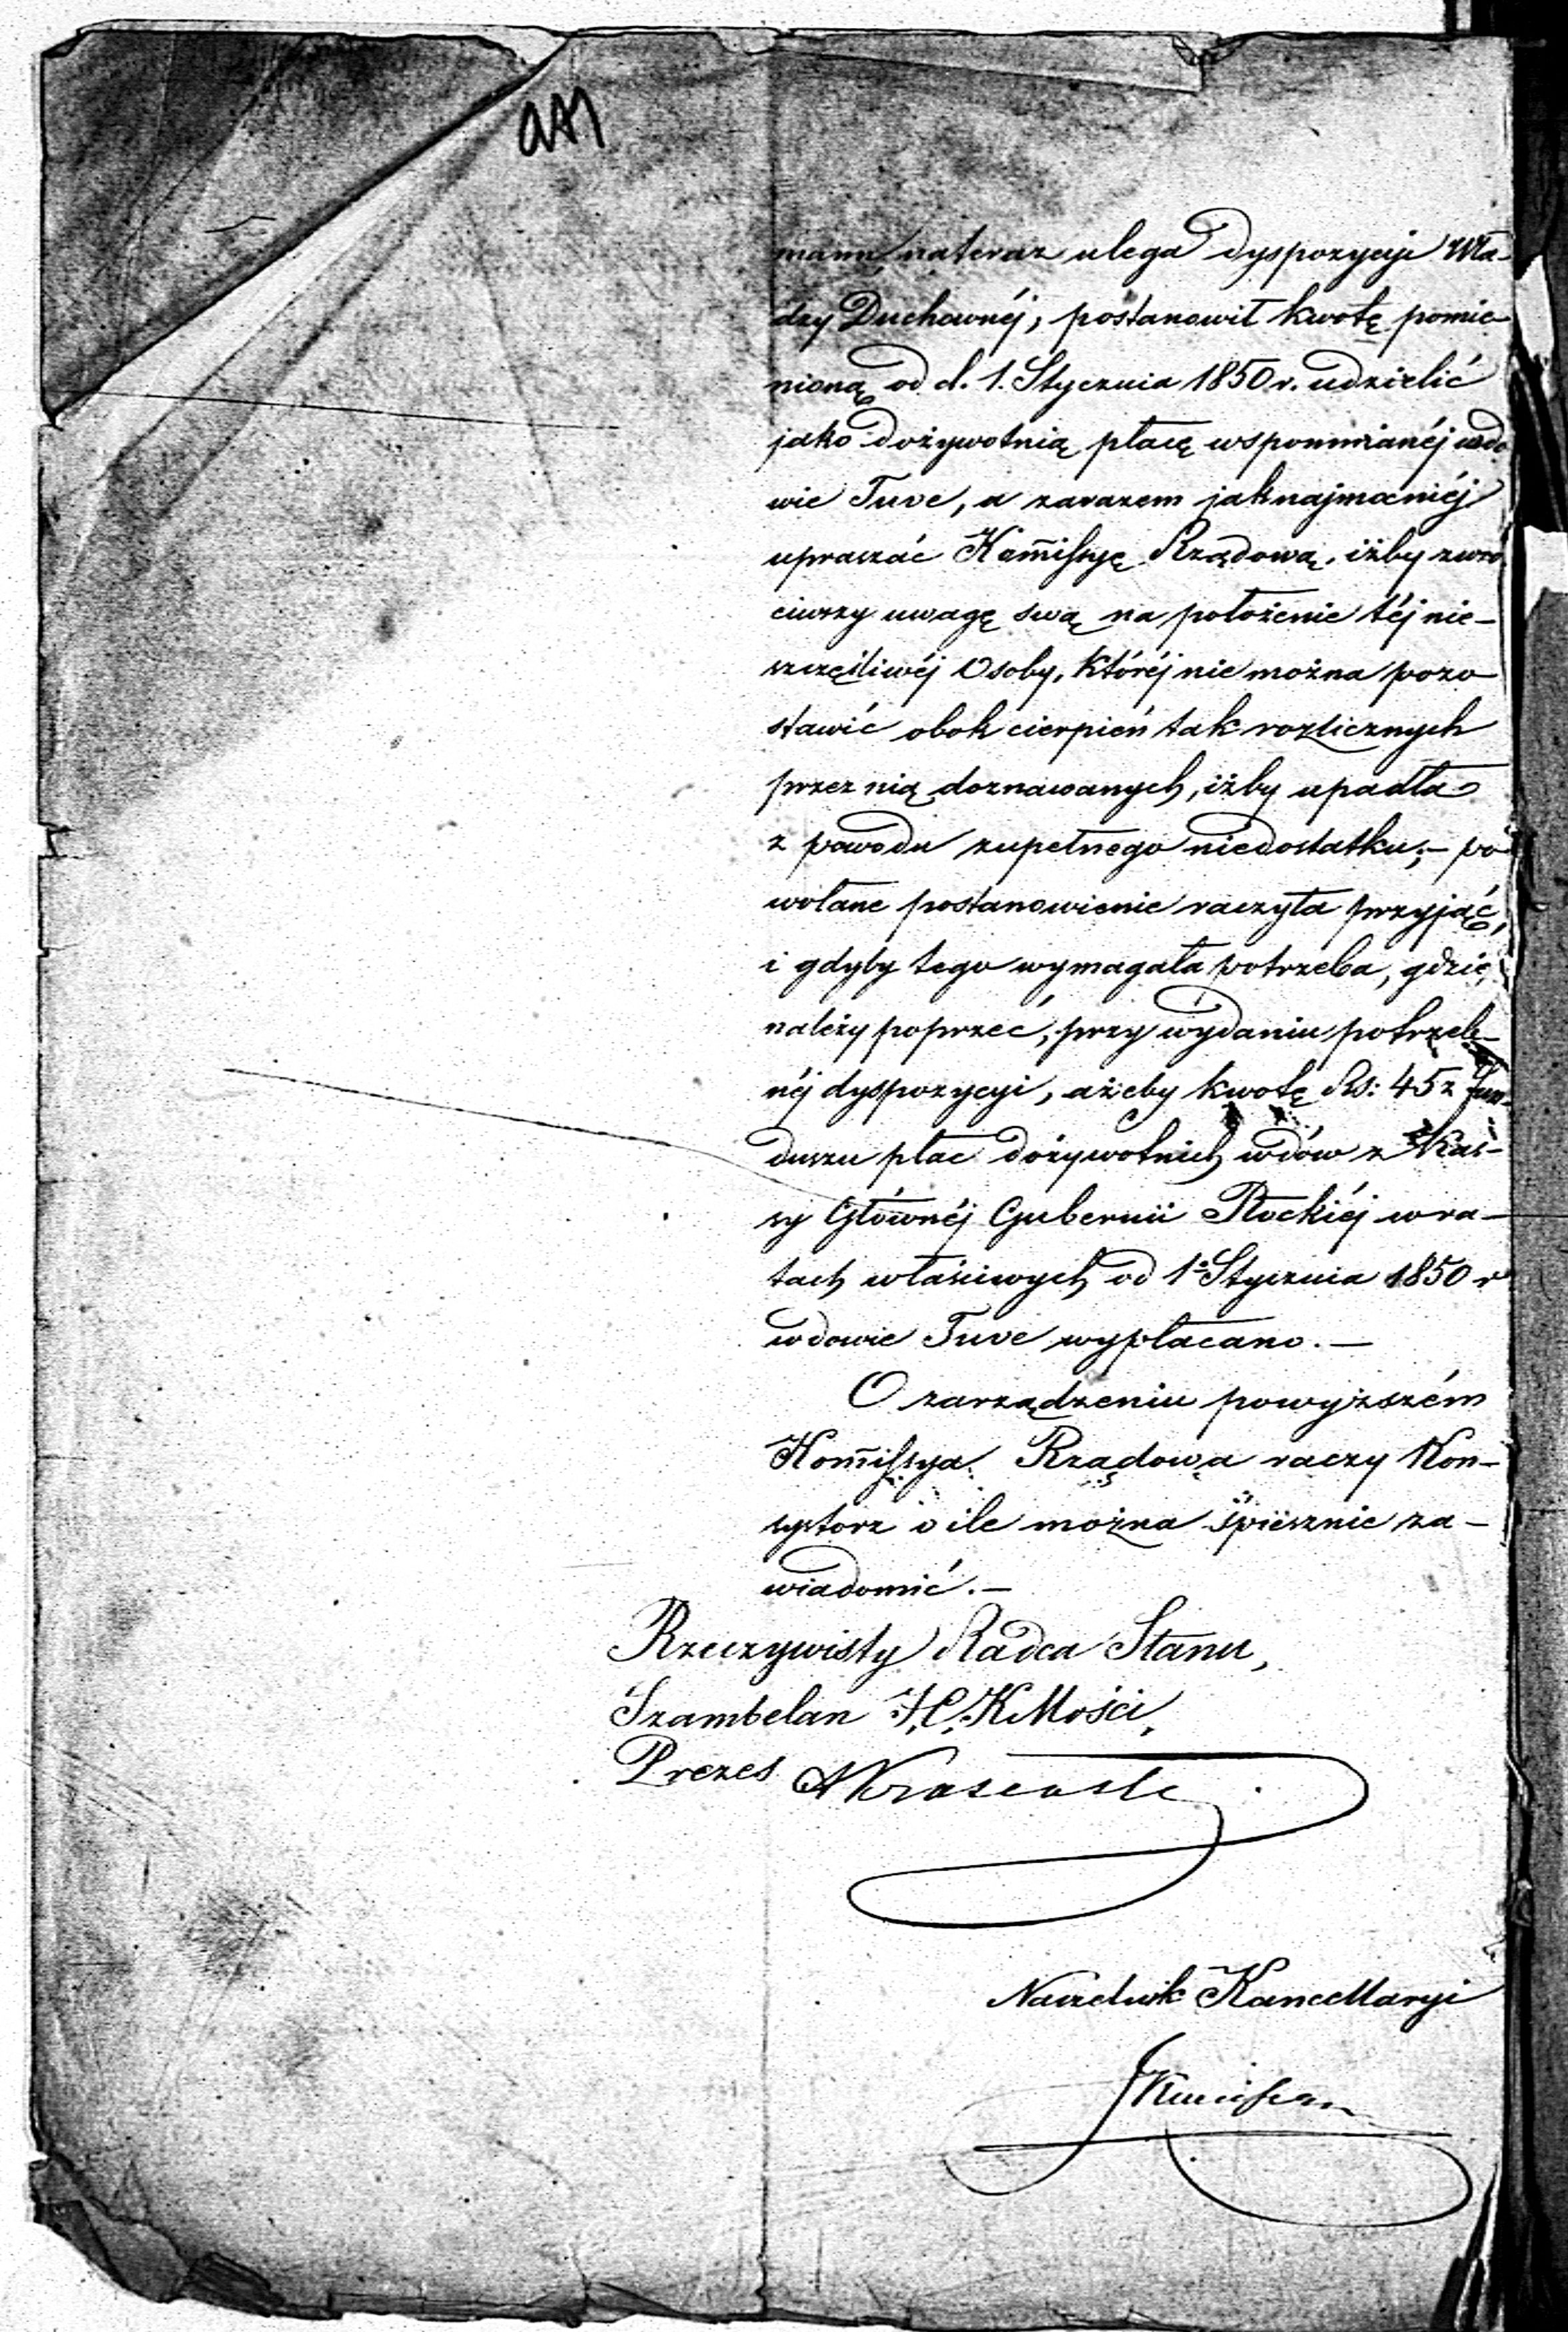 mann, nateraz ulega dyspozycyi Wła-
dzy Duchownéj, postanowił kwotę pomie
nioną od d. 1. Stycznia 1850 r. udzielić
jako dożywotnią płacę wspomnianéj wdo
wie Tuve, a zarazem jaknajmocniéj
upraszać Kom̄issyę Rządową, iżby zwró
ciwszy uwagę swą na położenie téj nie-
szczęśliwéj Osoby, któréj nie można pozo
stawić obok cierpień tak rozlicznych
przez nią doznawanych, iżby upadła
z powodu zupełnego niedostatku; - po
wołane postanowienie raczyła przyjąć,
i gdyby tego wymagała potrzeba, gdzie
należy poprzeć, przy wydaniu potrzeb-
néj dyspozycyi, ażeby kwotę Rs: 45 z fun-
duszu płac dożywotnich wdów z Kas-
sy Głównéj Gubernii Płockiéj w ra-
tach właściwych od 1º Stycznia 1850 r
wdowie Tuve wypłacano. -
O zarządzeniu powyższém
Kom̄issya Rządowa raczy Kon-
systorz o ile można śpiesznie za-
wiadomić. -
Rzeczywisty Radca Stanu,
Szambelan J.C.K. Mości,
Prezes
Naczelnik Kancellaryi